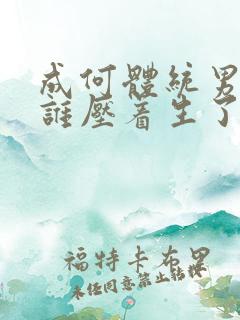 成何體統男
誰壓着生了
福特卡布里
未经同意禁止转械